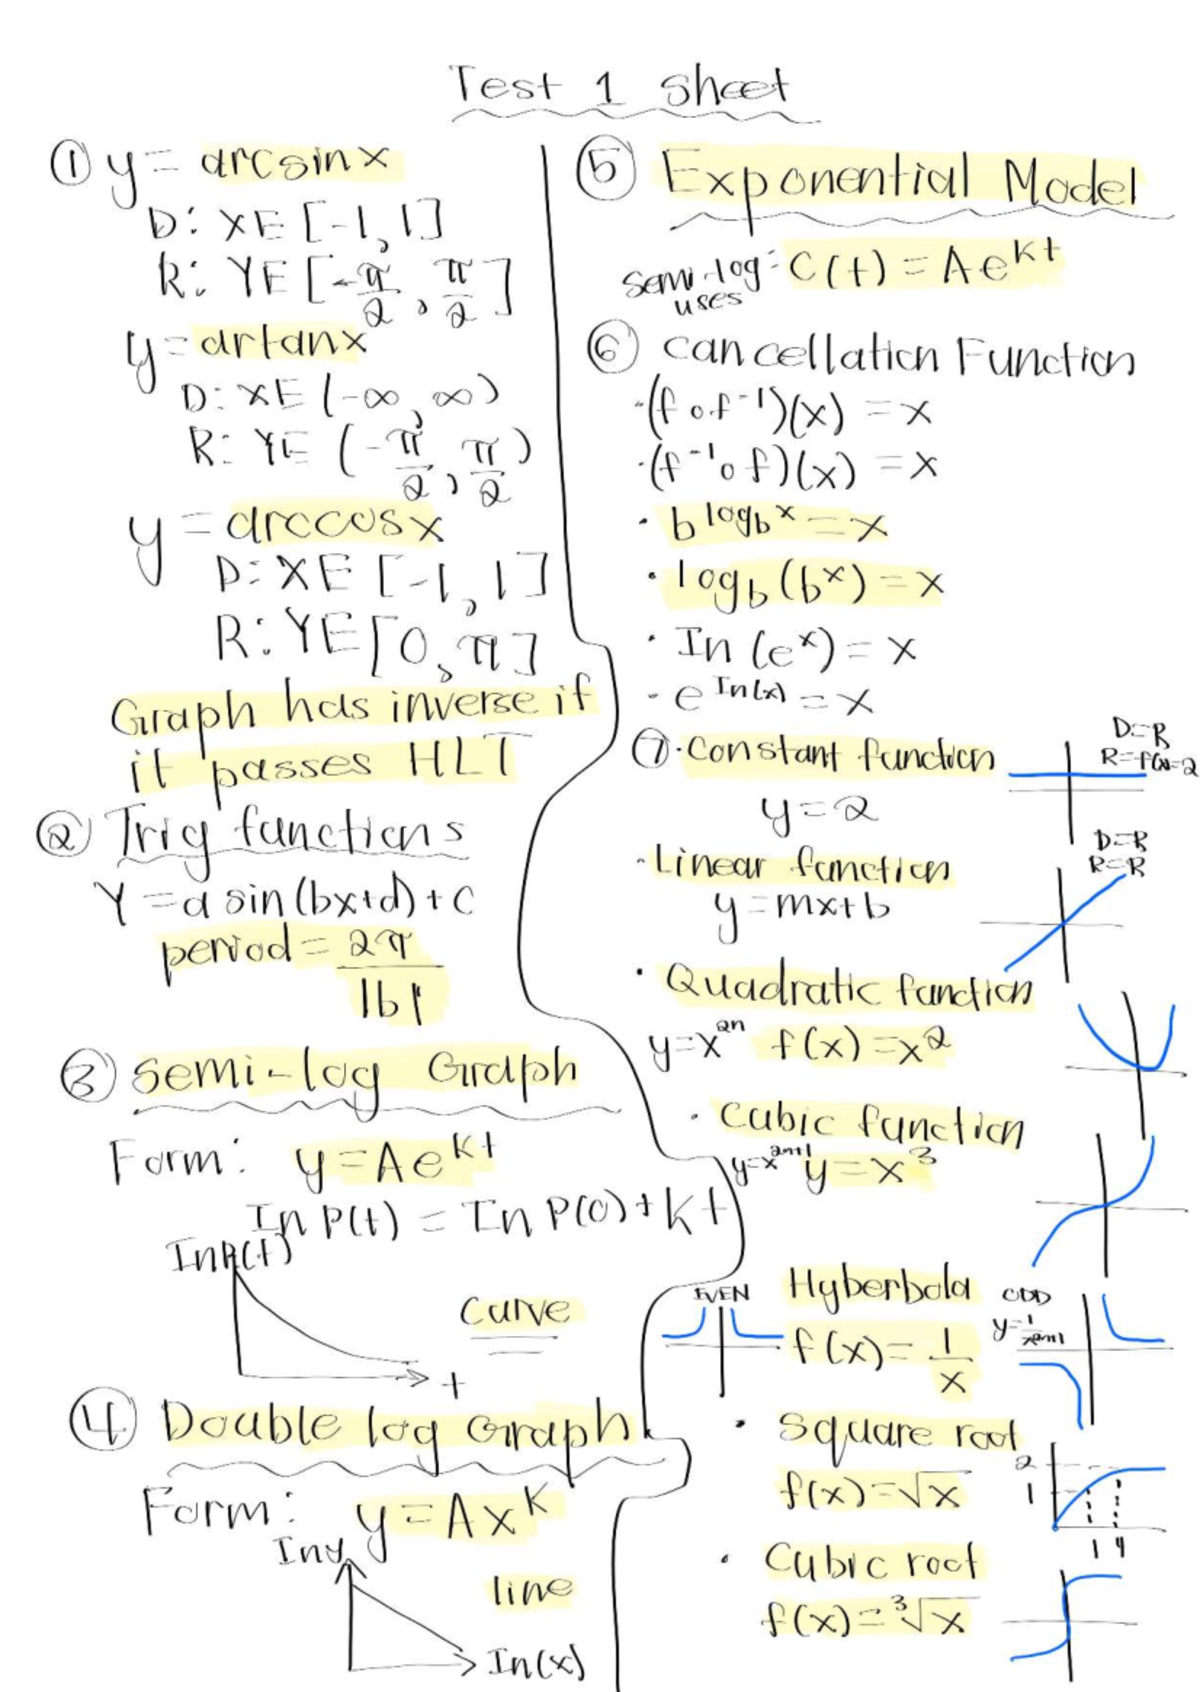 Test 1 sheet
① y = arcsinx
D: XE [-1, 1]
R: YE [-π/2, π/2]
y = artanx
D: XE (-∞, ∞)
R: YE (-π/2, π/2)
y = arccosx
D: XE [-1, 1]
R: YE [0, π]
Graph has inverse if
it passes HLT
② Trig functions
Y = a sin(bx+d)+c
period = 2π/|b|
③ semi-log Graph
Form: y = Ae^kt
In P(t) = In P(0) + kt
InP(t)
curve
t
④ Double log Graph
Form: y = Ax^k
Iny
line
In(x)
⑤ Exponential Model
semi-log: C(t) = Ae^kt
uses
⑥ cancellation Function
·(f o f^-1)(x) = x
·(f^-1 o f)(x) = x
· b^log_b x = x
· log_b(b^x) = x
· In (e^x) = x
· e^In(x) = x
⑦ · Constant function
D=R
R=f(x)=2
y = 2
· Linear function
D=R
R=R
y = mx+b
· Quadratic function
y=x^2n f(x) = x^2
· cubic function
y=x^2n+1 y = x^3
EVEN
Hyberbola
ODD
f(x) = 1/x
y=1/x^2n+1
· square root
f(x) = √x
2
1
1 4
· Cubic root
f(x) = ³√x